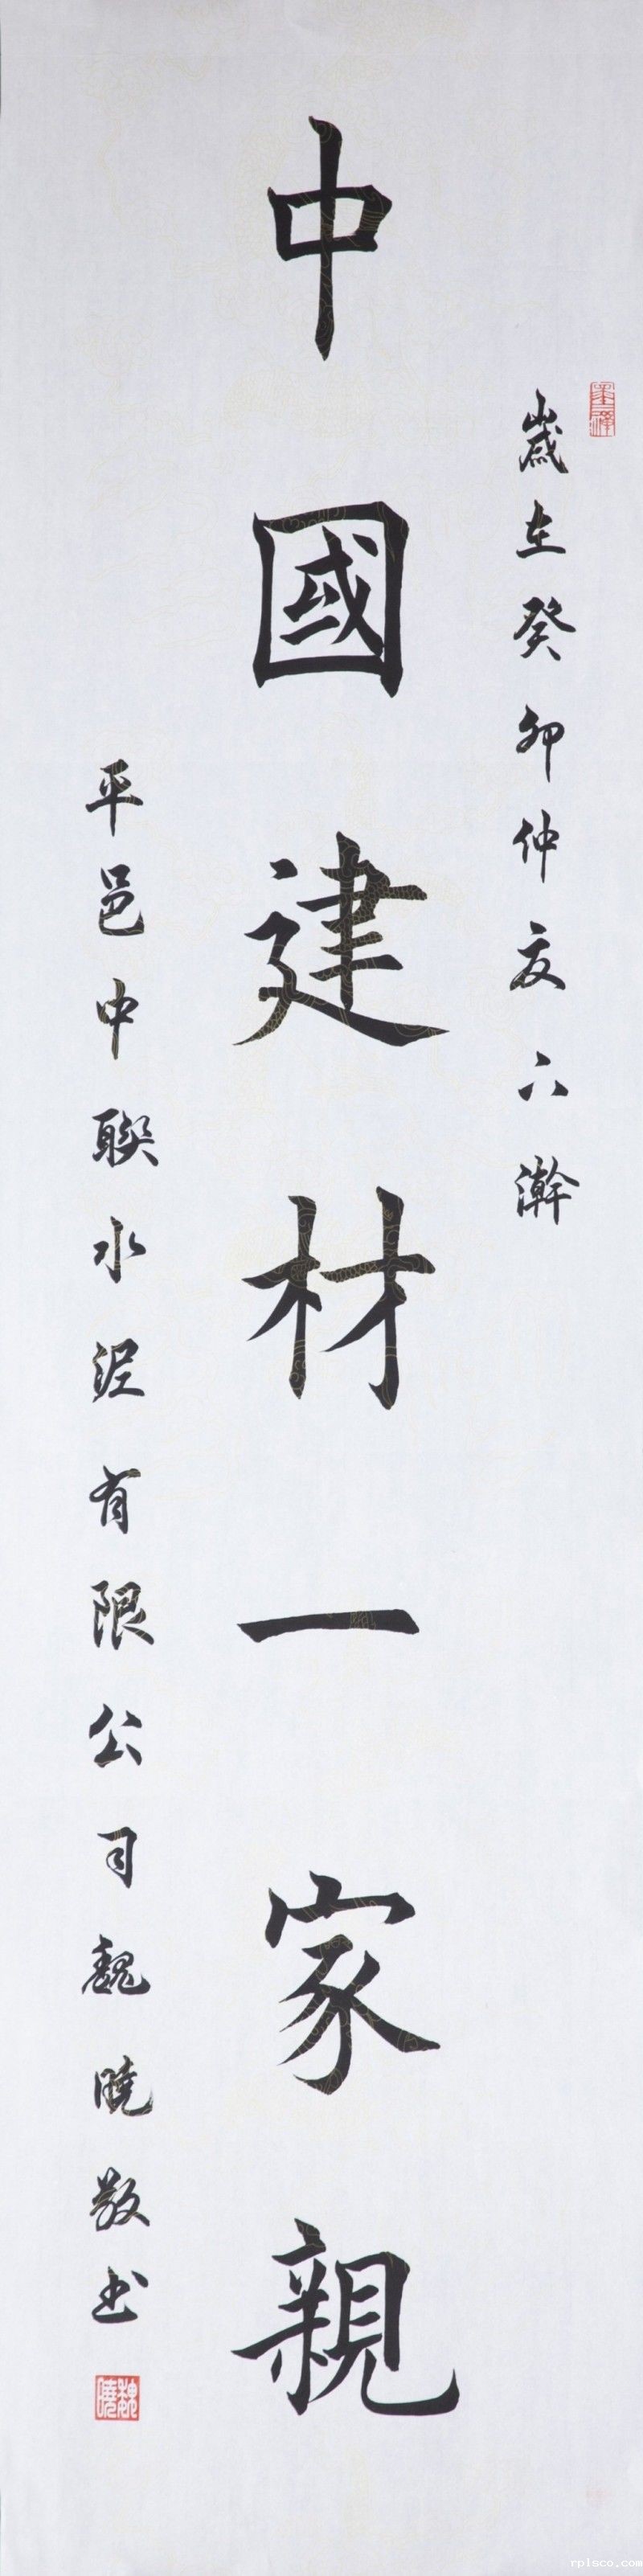 歲在癸卯仲夏六澣
中國建材一家親
平邑中聯水泥有限公司魏曉敬书
魏曉
rplsco.com